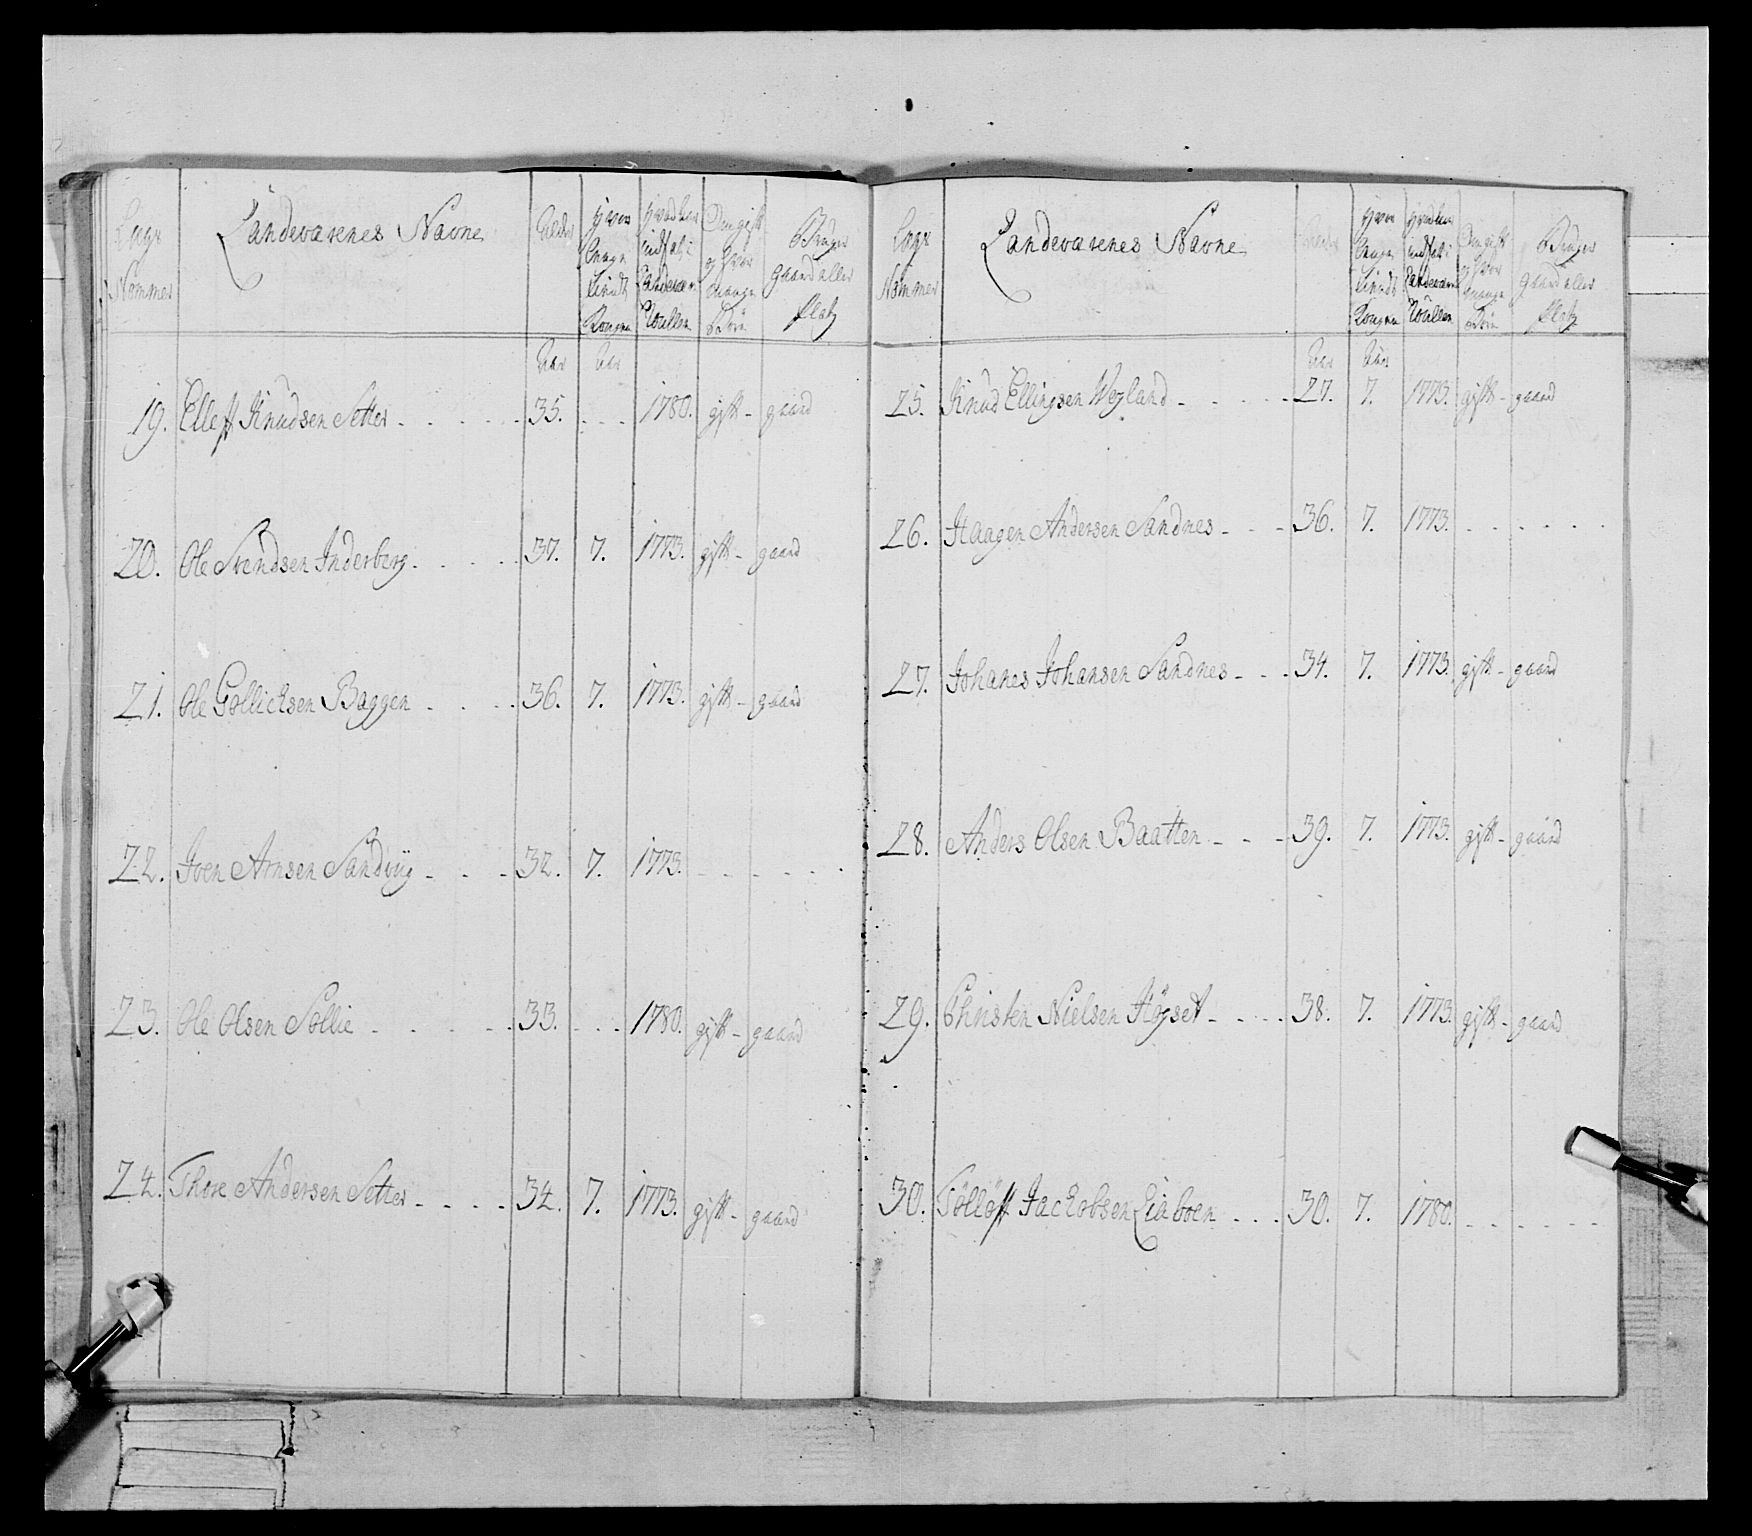 Lægs Nommer | Landeværenes Navne | Alder | Hvor Længe Tiendt Kongen | Hvad Aar indsat i Landeværn Rullen | Om gift og Hvor mange Børn | Bruger Gaard eller Platz
Aar | Aar
19. Elleff Knudsen Setter . . . . . 35. . . . 1780. gift - gaard
20. Ole Svendsen Inderberg . . . . . 37. 7. 1773. gift - gaard
21. Ole Gollichsen Baggen . . . . 36. 7. 1773. gift - gaard
22. Joen Arnsen Sandviig - - - 32. 7. 1773. - - - - - -
23. Ole Olsen Sollie . . . . . 33. . . . 1780. gift - gaard
24. Thore Andersen Setter - - - - 34. 7. 1773. gift - gaard
Lægs Nommer | Landeværenes Navne | Alder | Hvor Længe Tiendt Kongen | Hvad Aar indsat i Landeværn Rullen | Om gift og Hvor mange Børn | Bruger Gaard eller Platz
Aar | Aar
25. Knud Ellingsen Weyland - - - - - 27. 7. 1773. gift - gaard
26. Haagen Andersen Sandnes - - - 36. 7. 1773. - - - - - -
27. Johanes Johansen Sandnes - - - 34. 7. 1773. gift - gaard
28. Anders Olsen Baatten - - - 39. 7. 1773. gift - gaard
29. Christen Nielsen Høyset - - - - 38. 7. 1773. gift - gaard
30. Tølløff Jackobsen Liaboen . . . 30. 7. 1780. - - - - - -